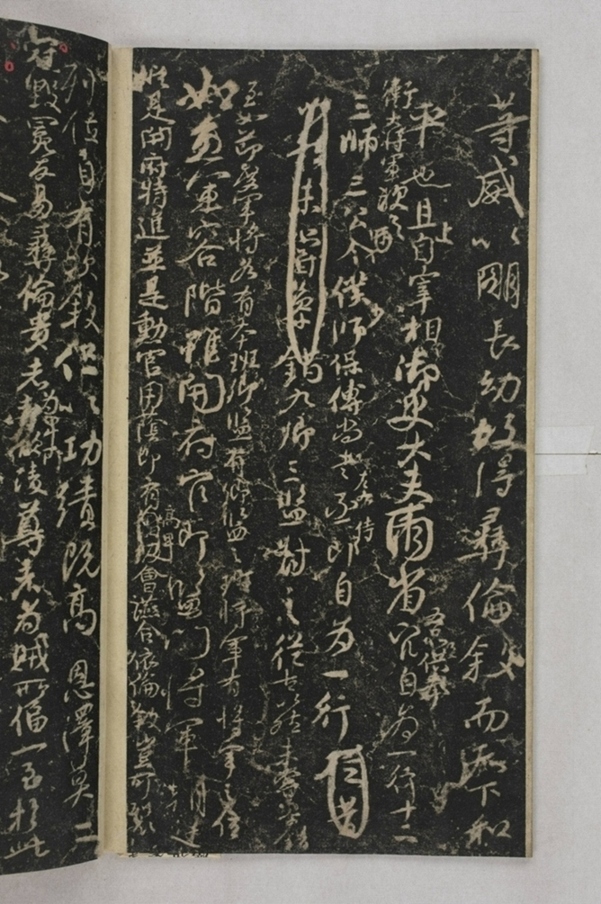 等威以明長幼故得彝倫敘而天下和
平也且上自宰相御史大夫兩省五品以上供奉官自為一行十二
衛大將軍次之
三師三公令僕少師保傅尚書左右丞侍郎自為一行
九卿三監對之從古以然未嘗參錯
至如節度軍將各有本班卿監有卿監之班將軍有將軍之位
如魚軍容階雖開府官即監門將軍朝廷
縱是開府特進並是勳官用蔭即有高卑會讌合依倫敘豈可裂
列位自有次敘但以功績既高恩澤莫二
冠毀冕反易彝倫貴者為卑所凌尊者為賊所偪一至於此